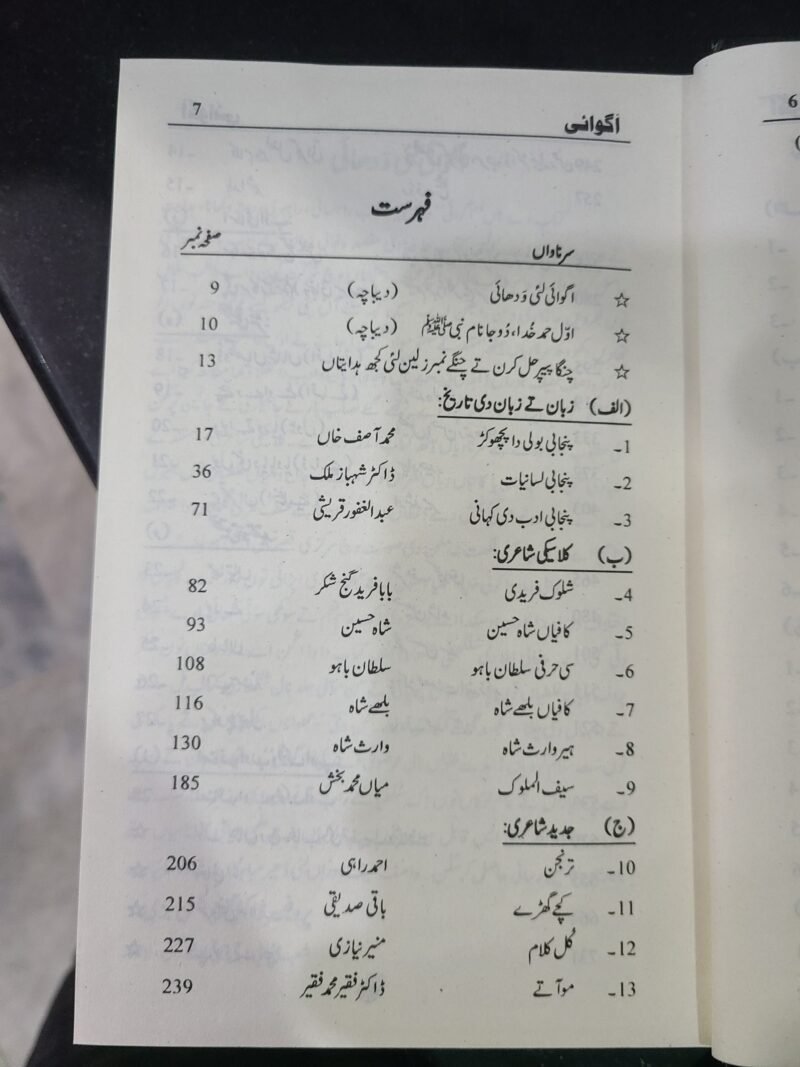 اَگوائی 7
فہرست
سرناواں صفحہ نمبر
☆ اگوائی لئی وَدھائی (دیباچہ) 9
☆ اوّل حمد خُدا، دُوجا نام نبی ﷺ (دیباچہ) 10
☆ چنگا پیپر حل کرن تے چنگے نمبر لین لئی کجھ ہدایتاں 13
(الف) زبان تے زبان دی تاریخ:
1۔ پنجابی بولی دا پچھوکڑ محمد آصف خاں 17
2۔ پنجابی لسانیات ڈاکٹر شہباز ملک 36
3۔ پنجابی ادب دی کہانی عبدالغفور قریشی 71
(ب) کلاسیکی شاعری:
4۔ شلوک فریدی بابا فرید گنج شکر 82
5۔ کافیاں شاہ حسین شاہ حسین 93
6۔ سی حرفی سلطان باہو سلطان باہو 108
7۔ کافیاں بلھے شاہ بلھے شاہ 116
8۔ ہیر وارث شاہ وارث شاہ 130
9۔ سیف الملوک میاں محمد بخش 185
(ج) جدید شاعری:
10۔ ترنجن احمد راہی 206
11۔ کچے گھڑے باقی صدیقی 215
12۔ کُل کلام منیر نیازی 227
13۔ موآتے ڈاکٹر فقیر محمد فقیر 239
6